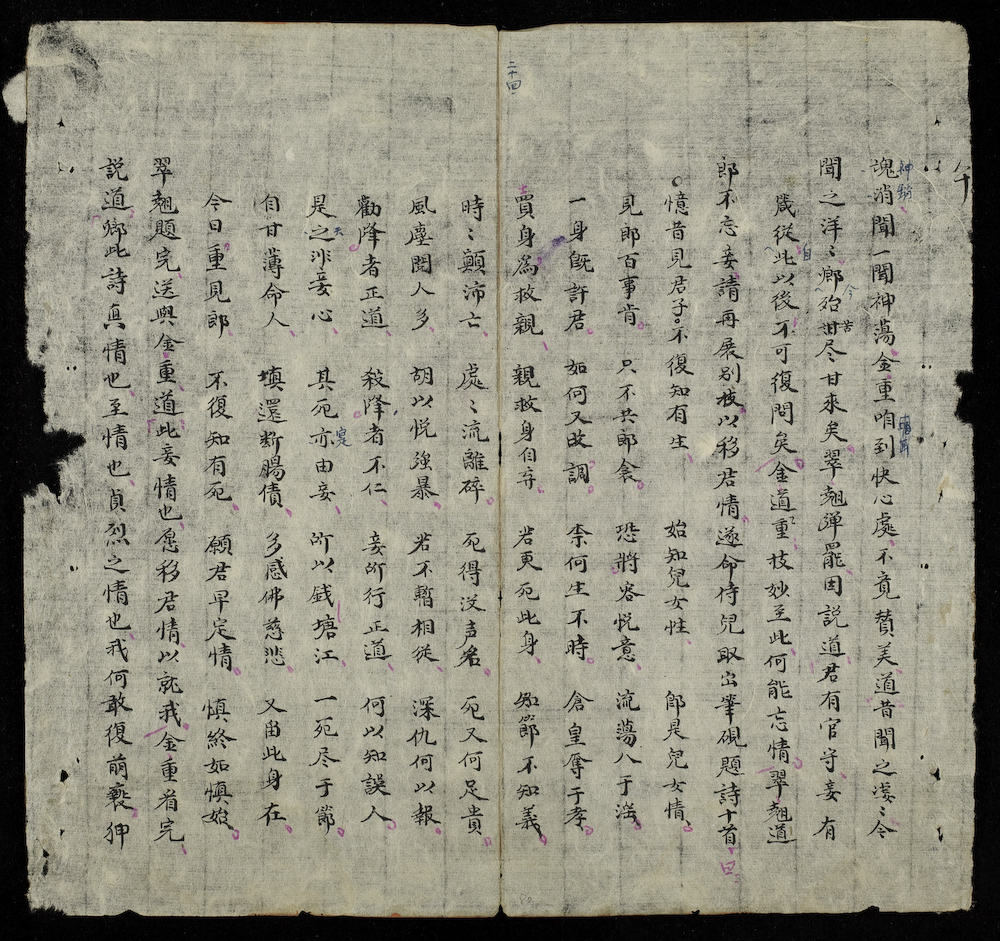 二十四
魂消聞一聞神蕩金重咱到快心處不竟賛美道昔聞之凄〻今
神銷
聞之洋〻鄉殆甘尽甘來矣翠翹弹罷因説道君有官守妾有
今
苦
歲從此以後不可復問矣金道重技妙至此何能忘情翠翹道
自
郎不忘妾請再展别技以移君情遂命侍兒取出筆硯題詩十首曰
憶昔見君子不復知有生 始知兒女性 即是兒女情
見郎百事肯 只不共郎衾 恐將容悦意 流蕩八于淫
一身旣許君 如何又改調 柰何生不時 倉皇奪于孝
賣身爲救親 親救身自弃 若更死此身 知節不知義
時〻顛沛亡 處〻流離碎 死得没声名 死又何足貴
風塵閲人多 胡以悦強暴 若不暫相從 深仇何以報
勸降者正道 殺降者不仁 妾所行正道 何以知誤人
是之非妾心 其死亦由妾 所以錢塘江 一死尽于節
自甘薄命人 填還断腸債 多感佛慈悲 又畄此身在
今日重見郎 不復知有死 願君早定情 慎終如慎始
翠翹題完送與金重道此妾情也愿移君情以就我金重看完
説道鄉此詩真情也至情也貞烈之情也我何敢復萌褻狎